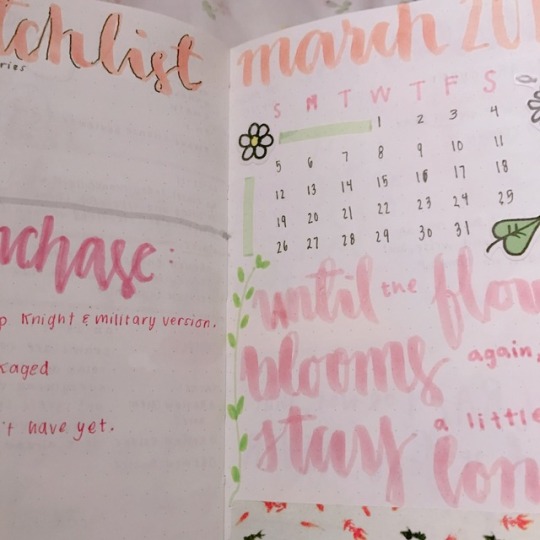 tchlist
ries
chase:
p Knight & military version.
kaged
't have yet.
march 20
S M T W T F S
1 2 3 4
5 6 7 8 9 10 11
12 13 14 15 16 17 18
19 20 21 22 23 24 25
26 27 28 29 30 31
until the flow
blooms again,
stay a little
lon